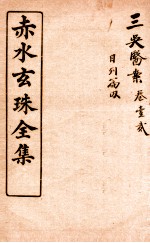 三吳醫案 卷壹貳
赤水玄珠全集